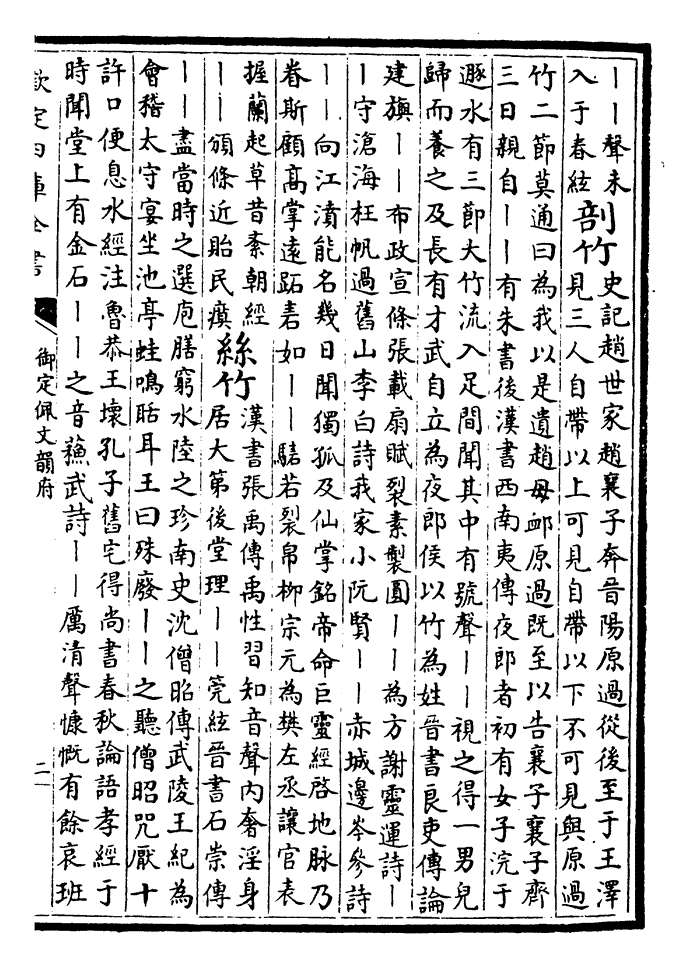 ――聲未
入于春絃
剖竹
史記趙世家趙襄子奔晉陽原過從後至于王澤
見三人自帶以上可見自帶以下不可見與原過
竹二節莫通曰為我以是遺趙毋卹原過既至以告襄子襄子齊
三日親自――有朱書後漢書西南夷傳夜郎者初有女子浣于
遯水有三節大竹流入足間聞其中有號聲――視之得一男兒
歸而養之及長有才武自立為夜郎侯以竹為姓晉書良吏傳論
建旟――布政宣條張載扇賦裂素製圓――為方謝靈運詩―
―守滄海枉帆過舊山李白詩我家小阮賢――赤城邊岑參詩
――向江濆能名幾日聞獨孤及仙掌銘帝命巨靈經啓地脉乃
眷斯顧高掌遠跖砉如――騞若裂帛柳宗元為樊左丞讓官表
握蘭起草昔紊朝經
――頒條近貽民瘼
絲竹
漢書張禹傳禹性習知音聲內奢淫身
居大第後堂理――筦絃晉書石崇傳
――盡當時之選庖膳窮水陸之珍南史沈僧昭傳武陵王紀為
會稽太守宴坐池亭蛙鳴聒耳王曰殊廢――之聽僧昭咒厭十
許口便息水經注魯恭王壞孔子舊宅得尚書春秋論語孝經于
時聞堂上有金石――之音蘓武詩――厲清聲慷慨有餘哀班
欽定四庫全書
御定佩文韻府
二